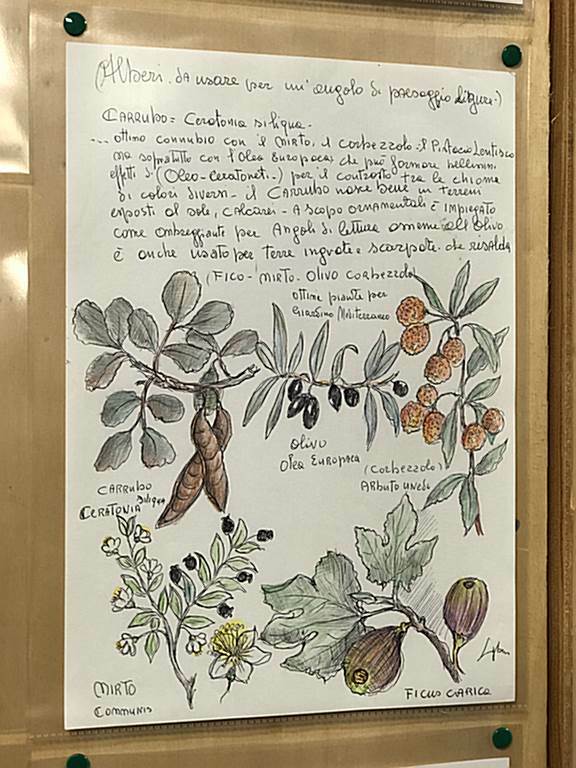 (Alberi. da usare per un'angolo di paesaggio ligure.)
CARRUBO = Ceratonia siliqua.
... ottimo connubio con il Mirto, il corbezzolo il Pistacio Lentisco
ma sopratutto con l'Olea Europaea che può formare bellissimi
effetti di (Oleo-ceratoneti..) per il contrasto tra le chiome
di colori diversi - il CARRUBO nasce bene in terreni
esposti al sole, calcarei - A scopo ornamentali è impiegato
come ombreggiante per Angoli di lettura assieme all'olivo
è anche usato per terre ingrate e scarpate. da risalda
(FICO - MIRTO - OLIVO CORBEZZOLO)
ottime piante per
Giardino Mediterraneo
OLIVO
Olea Europaea
(Corbezzolo)
Arbuto unedo
CARRUBO
siliqua
CERATONIA
MIRTO
Communis
FICUS CARICA